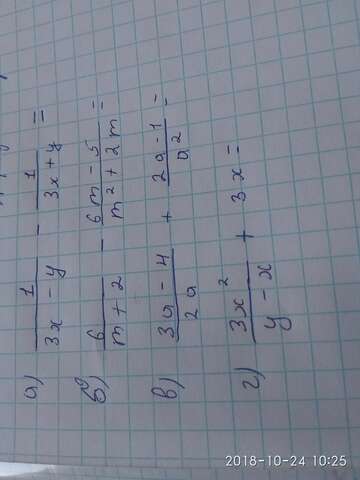 а) 1/(3x - y) - 1/(3x + y) =
б) 6/(m + 2) - (6m - 5)/(m² + 2m) =
в) (3a - 4)/(2a) + (2a - 1)/(a²) =
г) 3x²/(y - x) + 3x =
2018-10-24 10:25